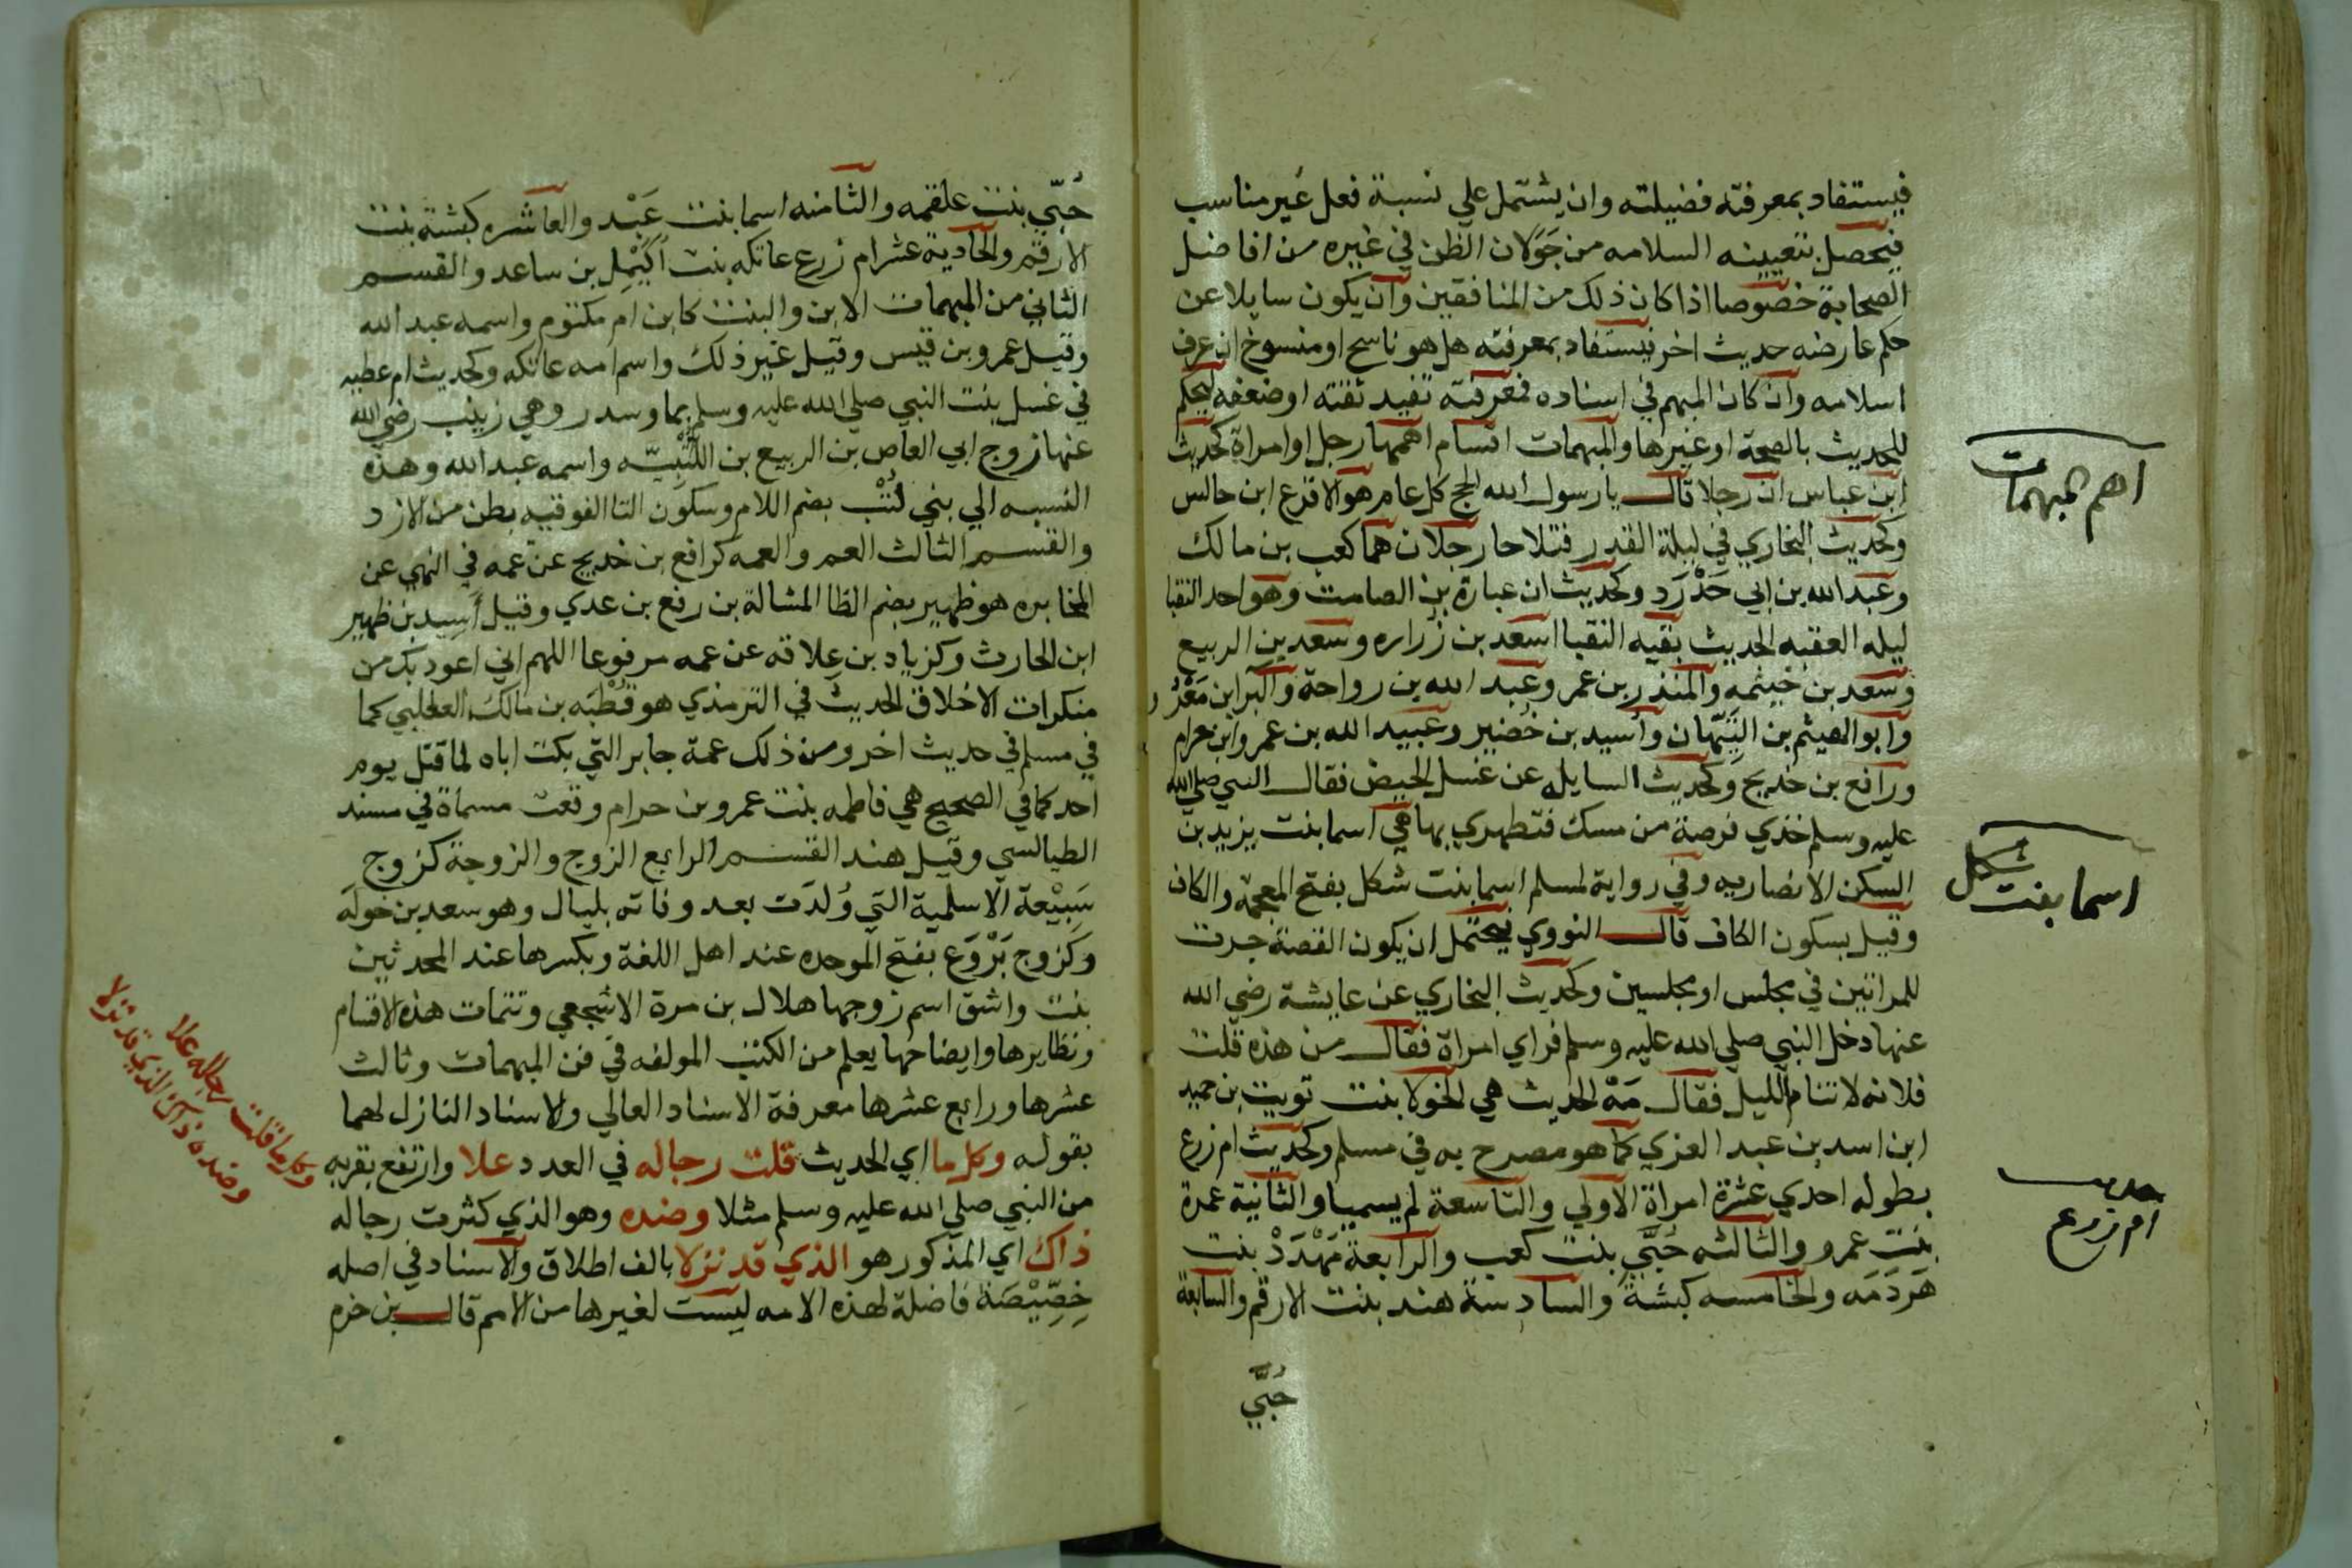 فيستفاد بمعرفته فضيلته وان يشتمل علي نسبة فعل غير مناسب
فيحصل بتعيينه السلامه من جَوَلان الظن في غيره من افاضل
الصحابة خصوصا اذا كان ذلك من المنافقين وان يكون سايلا عن
حكم عارضه حديث اخر فيستفاد بمعرفته هل هو ناسخ او منسوخ ان عرف
اسلامه وان كان المبهم في اسناده فمعرفته تفيد ثقته او ضعفه ليحكم
للحديث بالصحة او غيرها والمبهمات اقسام اهمها رجل او امراة كحديث
ابن عباس ان رجلا قال يا رسول الله الحج كل عام هو الاقرع ابن حابس
وكحديث البخاري في ليلة القدر فتلاحا رجلان هما كعب بن مالك
وعبد الله بن ابي حَدْرَد وكحديث ان عبادة بن الصامت وهو احد النقبا
ليله العقبه الحديث بقيه النقبا اسعد بن زراره وسعد بن الربيع
وسعد بن خيثمه والمنذر بن عمر وعبد الله بن رواحة والبرا بن مَعْرُور
وابو الهيثم بن التَّيِّهان واسيد بن حُضير وعبيد الله بن عمرو ابن حرام
ورافع بن خديج وكحديث السايله عن غسل الحيض فقال النبي صلي الله
عليه وسلم خذي فرصة من مسك فتطهري بها هي اسما بنت يزيد بن
السكن الانصاريه وفي رواية لمسلم اسما بنت شكل بفتح المعجمة والكاف
وقيل بسكون الكاف قال النووي يحتمل ان يكون القصة جرت
للمراتين في مجلس او مجلسين وكحديث البخاري عن عايشة رضي الله
عنها دخل النبي صلي الله عليه وسلم فراي امراة فقال من هذه قلت
فلانه لا تنام الليل فقال مَهْ الحديث هي الخولا بنت تويت بن حبيد
ابن اسد بن عبد العزي كما هو مصرح به في مسلم وكحديث ام زرع
بطوله احدي عشرة امراة الاولي والتاسعة لم يسميا والثانية عمرة
بنت عمرو والثالثه حُبَّي بنت كعب والرابعة مَهْدَدْ بنت
هَردَمَه والخامسه كبشة والسادسة هند بنت الارقم والسابعة
حُبَّي
اهم المبهمات
اسما بنت شكل
حديث
ام زرع
حُبّي بنت علقمه والثامنه اسما بنت عَبْد والعاشره كبشة بنت
الارقم والحادية عشر ام زرع عاتكه بنت اُكَيْمِل بن ساعد والقسم
الثاني من المبهمات الابن والبنت كابن ام مكتوم واسمه عبد الله
وقيل عمرو بن قيس وقيل غير ذلك واسم امه عاتكه وكحديث ام عطيه
في غسل بنت النبي صلي الله عليه وسلم بما وسدر وهي زينب رضي الله
عنها زوج ابي العاص بن الربيع بن اللُّتْبِيّه واسمه عبد الله وهذه
النسبه الي بني لُتْب بضم اللام وسكون التا الفوقيه بطن من الازد
والقسم الثالث العم والعمه كرافع بن خديج عن عمه في النهي عن
المخابره هو ظهير بضم الظا المشالة بن رافع بن عدي وقيل اسيد بن ظهير
ابن الحارث وكزياد بن عِلاقه عن عمه مرفوعا اللهم اني اعوذ بك من
منكرات الاخلاق الحديث في الترمذي هو قُطْبَه بن مالك الثعلبي كما
في مسلم في حديث اخر ومن ذلك عمة جابر التي بكت اباه لما قتل يوم
احد كما في الصحيح هي فاطمه بنت عمرو بن حرام وقعت مسماة في مسند
الطيالسي وقيل هند القسم الرابع الزوج والزوجة كزوج
سَبِيْعة الاسلمية التي وُلدَت بعد وفاته بليال وهو سعد بن خولَه
وكزوج بَرْوَع بفتح الموحده عند اهل اللغة وبكسرها عند المحدثين
بنت واشق اسم زوجها هلال بن مرة الاشجعي وتتمات هذه الاقسام
ونظايرها وايضاحها يعلم من الكتب المولفه في فن المبهمات وثالث
عشرها ورابع عشرها معرفة الاسناد العالي والاسناد النازل لهما
بقوله وكل ما اي الحديث قلت رجاله في العدد علا وارتفع بقربه
من النبي صلي الله عليه وسلم مثلا وضده وهو الذي كثرت رجاله
ذاك اي المذكور هو الذي قد نزلا بالف اطلاق والاسناد في اصله
خِصِّيْصَة فاضلة لهذه الامه ليست لغيرها من الامم قال بن حزم
وكل ما قلت رجاله علا
وضده ذاك الذي قد نزلا